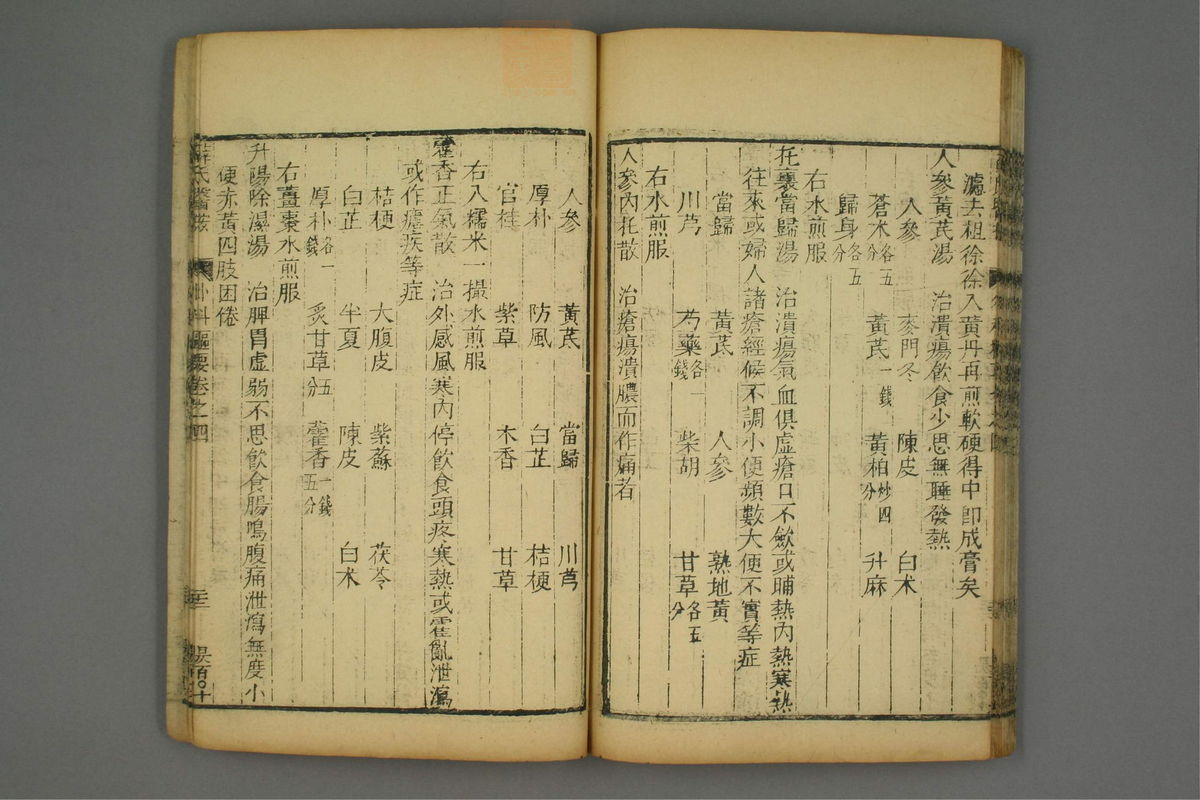 濾去柤徐徐入黃丹再煎軟硬得中卽成膏矣
人參黃芪湯　治潰瘍飲食少思無睡發熱
人參　麥門冬　陳皮　白朮
蒼朮各五分　黃芪一錢　黃柏炒四分　升麻
歸身各五分
右水煎服
托裏當歸湯　治潰瘍氣血俱虛瘡口不斂或晡熱內熱寒熱
往來或婦人諸瘡經候不調小便頻數大便不實等症
當歸　黃芪　人參　熟地黃
川芎　芍藥各一錢　柴胡　甘草各五分
右水煎服
人參內托散　治瘡瘍潰膿而作痛者
人參　黃芪　當歸　川芎
厚朴　防風　白芷　桔梗
官桂　紫草　木香　甘草
右入糯米一撮水煎服
藿香正氣散　治外感風寒內停飲食頭疼寒熱或霍亂泄瀉
或作瘧疾等症
桔梗　大腹皮　紫蘇　茯苓
白芷　半夏　陳皮　白朮
厚朴各一錢　炙甘草五分　藿香一錢五分
右薑棗水煎服
升陽除濕湯　治脾胃虛弱不思飲食腸鳴腹痛泄瀉無度小
便赤黃四肢困倦
薛氏醫按　外科樞要卷之四